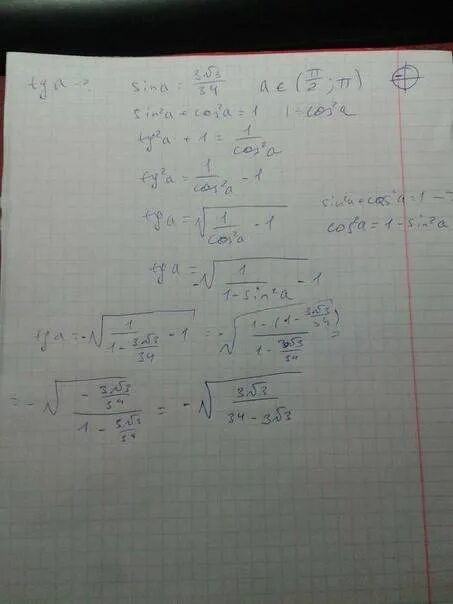 tg a - ? sin a = 3√3/34 a ∈ (π/2 ; π)
sin²a + cos²a = 1 1 - cos²a
tg²a + 1 = 1/cos²a
tg²a = 1/cos²a - 1
tg a = √(1/cos²a - 1) sin²a + cos²a = 1
cos²a = 1 - sin²a
tg a = -√(1/(1 - sin²a) - 1)
tg a = -√(1/(1 - 3√3/34) - 1) = -√((1 - (1 - 3√3/34))/(1 - 3√3/34)) =
= -√((- 3√3/34)/(1 - 3√3/34)) = -√(3√3/(34 - 3√3))